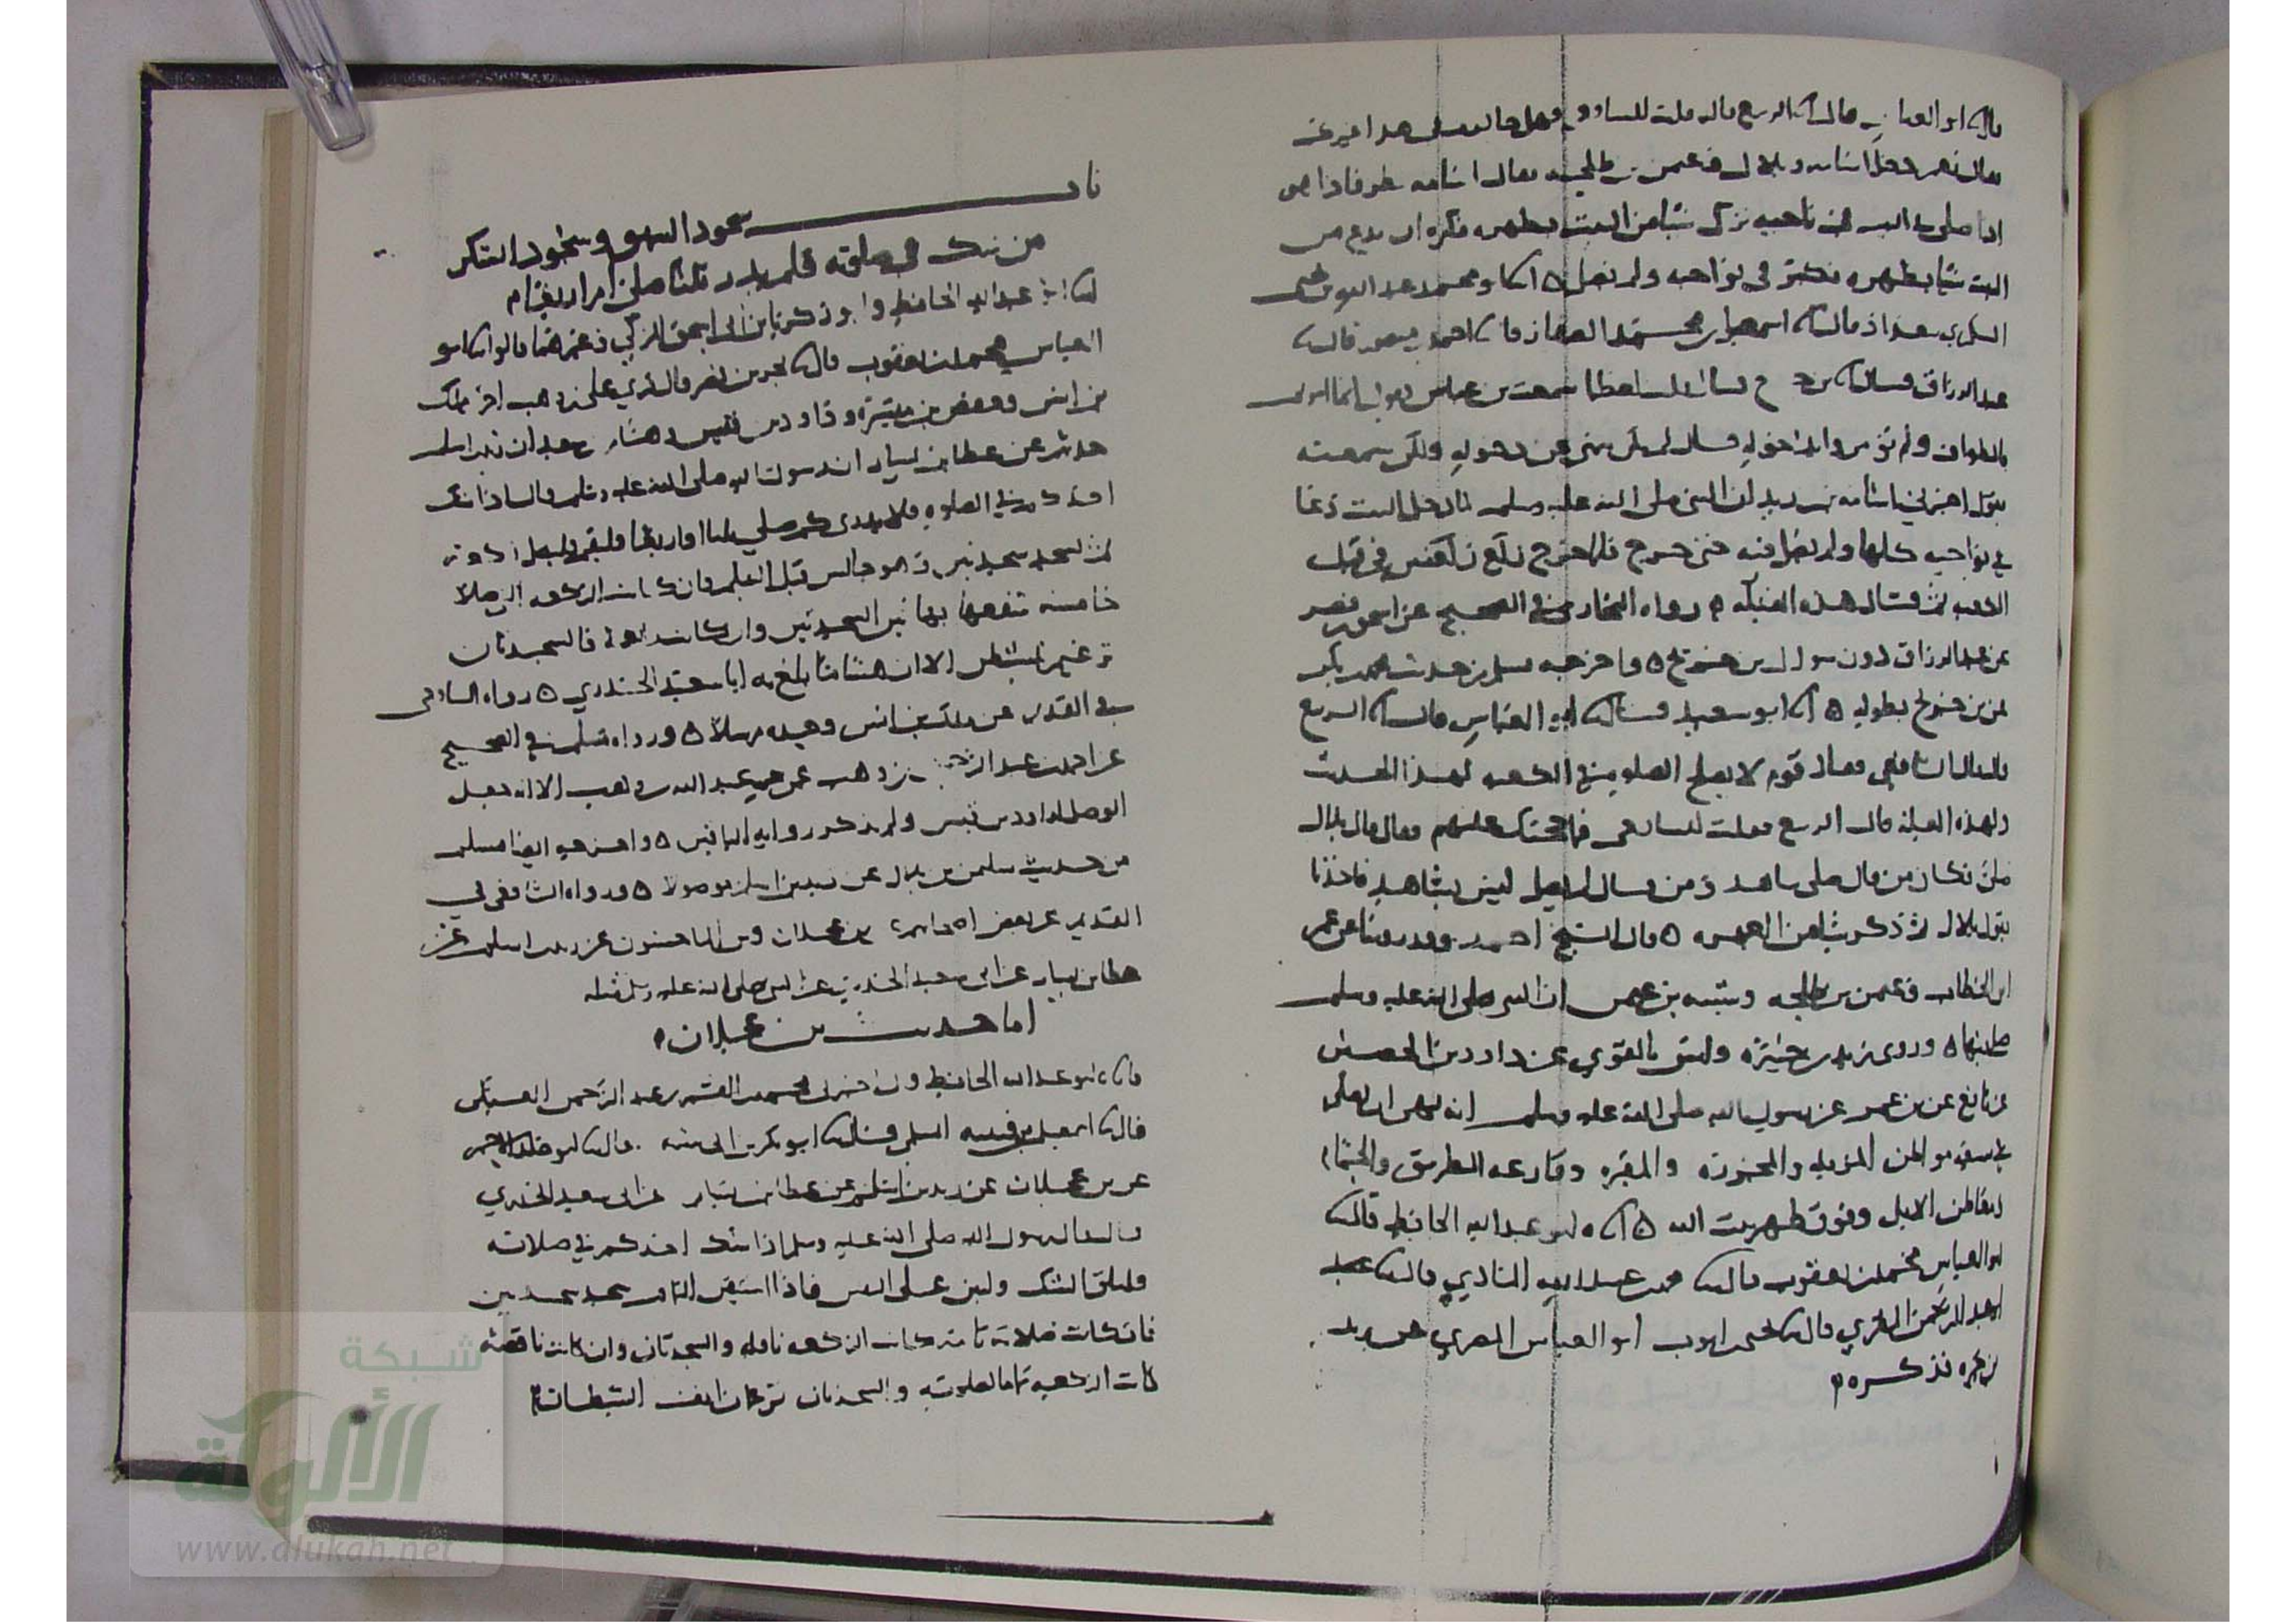 ابو العباس قال الربيع قال قلت للشافعي فهل خالفك في هذا غيرنا
فقال نعم دخل اسامة وبلال وعثمن بن طلحة فقال اسامة نظر فاذا هو
اذا صلى في البيت في ناحية ترك شيا من البيت بظهره فكره ان يدع من
البيت شيا بظهره فكبر في نواحيه ولم يصل ٥ ابو محمد عبد الله بن يحيى
السكري ببغداد قال اسمعيل بن محمد الصفار احمد بن منصور قال
عبد الرزاق قال بن جريج قال قلت لعطا سمعت بن عباس يقول انما امرتم
بالطواف ولم تؤمروا بدخوله قال لم يكن ينهى عن دخوله ولكن سمعته
يقول اخبرني اسامة بن زيد ان النبي صلى الله عليه وسلم لما دخل البيت دعا
في نواحيه كلها ولم يصل فيه حتى خرج فلما خرج ركع ركعتين في قبل
الكعبة ثم قال هذه القبلة رواه البخاري في الصحيح عن اسحق بن نصر
عن عبد الرزاق دون سوال بن جريج ٥ واخرجه مسلم من حديث محمد بن بكر
عن بن جريج بطوله ٥ ابو سعيد قال ابو العباس قال الربيع
قال الشافعي فقال قوم لا يصلح الصلوة في الكعبة لهذا الحديث
ولهذه العلة قال الربيع فقلت للشافعي فما حجتك عليهم فقال قال بلال
صلى فكان من قال صلى شاهد ومن قال لم يصل ليس بشاهد فاخذنا
بقول بلال ثم ذكر شيا من الحجة ٥ قال الشيخ احمد وقد روينا عن عمر
ابن الخطاب وعثمن بن طلحة وشيبه بن عثمن ان النبي صلى الله عليه وسلم
صلى فيها ٥ وروى زيد بن جبيرة وليس بالقوي عن داود بن الحصين
عن نافع عن بن عمر عن رسول الله صلى الله عليه وسلم انه نهى ان يصلى
في سبعة مواطن المزبلة والمجزرة والمقبرة وقارعة الطريق والحمام
ومعاطن الابل وفوق ظهر بيت الله ٥ ابو عبد الله الحافظ قال
ابو العباس محمد بن يعقوب قال محمد بن عبيد الله المنادي قال
عبد الرحمن المقري قال يحيى بن ايوب ابو العباس المصري عن زيد
بن جبيرة فذكره
باب
سجود السهو وسجود الشكر
من شك في صلاته فلم يدر ثلثا صلى ام اربعا
ابو عبد الله الحافظ وابو زكريا بن ابي اسحق المزكي وغيرهما قالوا ابو
العباس محمد بن يعقوب قال بحر بن نصر قال قري على بن وهب اخبرك مالك
بن انس وحفص بن ميسرة وداود بن قيس وهشام بن سعد ان زيد بن اسلم
حدثهم عن عطا بن يسار ان رسول الله صلى الله عليه وسلم قال اذا شك
احدكم في الصلوة فلا يدري كم صلى ثلثا او اربعا فليقم فليصل ركعة
ثم ليسجد سجدتين وهو جالس قبل السلم فان كانت الركعة التي صلا
خامسة شفعها بهاتين السجدتين وان كانت رابعة فالسجدتان
ترغيم للشيطن الا ان هشاما بلغ به ابا سعيد الخدري ٥ رواه الشافعي
في القديم عن مالك بن انس وحده مرسلا ٥ ورواه مسلم في الصحيح
عن احمد بن عبد الرحمن بن وهب عن عمه عبد الله بن وهب الا انه جعل
الوصل لداود بن قيس ولم يذكر رواية الباقين ٥ واخرجه ايضا مسلم
من حديث سليمن بن بلال عن زيد بن اسلم موصولا ٥ ورواه الشافعي في
القديم عن بعض اصحابه عن بن عجلان وبن الماجشون عن زيد بن اسلم عن
عطا بن يسار عن ابي سعيد الخدري عن النبي صلى الله عليه وسلم مثله
اما حديث بن عجلان
ابو عبد الله الحافظ قال اخبرني محمد بن القسم بن عبد الرحمن العتكي
قال اسمعيل بن قتيبة السلمي قال ابو بكر بن ابي شيبة قال ابو خالد الاحمر
عن بن عجلان عن زيد بن اسلم عن عطا بن يسار عن ابي سعيد الخدري
قال قال رسول الله صلى الله عليه وسلم اذا شك احدكم في صلاته
فليلق الشك وليبن على اليقين فاذا استيقن التمام سجد سجدتين
فان كانت صلاته تامة كانت الركعة نافلة والسجدتان وان كانت ناقصة
كانت الركعة تماما لصلوته والسجدتان ترغمان انف الشيطان
شبكة
الألوكة
www.alukah.net